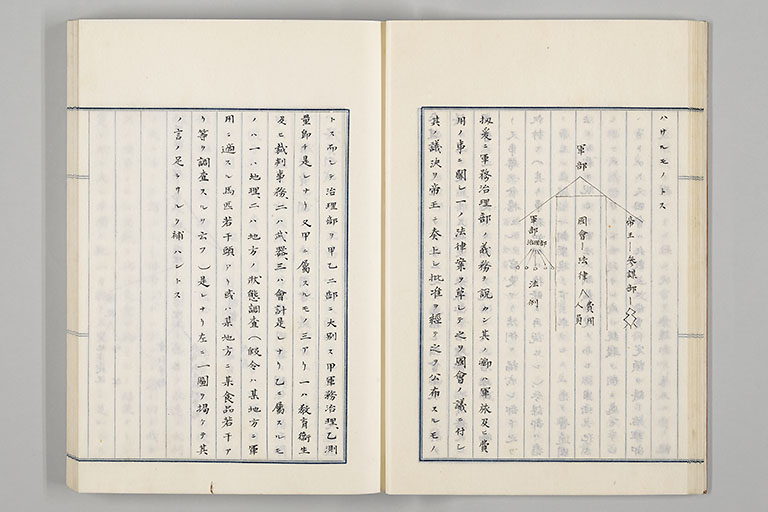 ハサルモノトス
軍部
帝王ー参謀部ー
國會ー法律
費用
人員
軍部
治理部
法例
扨爰ニ軍務治理部ノ義務ヲ説カン其ノ卿ハ軍旅及ヒ費
用ノ事ニ關シ一ノ法律案ヲ草シテ之ヲ國會ノ議ニ付シ
其ノ議決ヲ帝王ニ奏上シ批准ヲ經テ之ヲ公布スルモノ
トス而シテ治理部ヲ甲乙二部ニ大別ス甲軍務治理、乙測
量即チ是レナリ又甲ニ屬スルモノ三アリ一ハ教育衞生
及ヒ裁判事務、二ハ武器、三ハ會計是レナリ乙ニ屬スルモ
ノハ一ハ地理、二ハ地方ノ狀態調査(假令ハ某地方ニ軍
用ニ適スル馬匹若干頭アリ或ハ某地方ニ某食品若干ア
リ等ヲ調査スルヲ云フ)是レナリ左ニ一圖ヲ掲ケテ其
ノ言ノ足ラサルヲ補ハントス